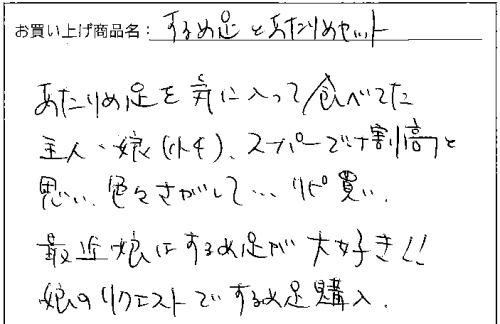 お買い上げ商品名: するめ足とあたりめセット
あたりめ足を気に入って食べてた
主人・娘(小4)、スーパーでは割高と
思い、色々さがして…リピ買い。
最近娘はするめ足が大好き!!
娘のリクエストでするめ足購入.